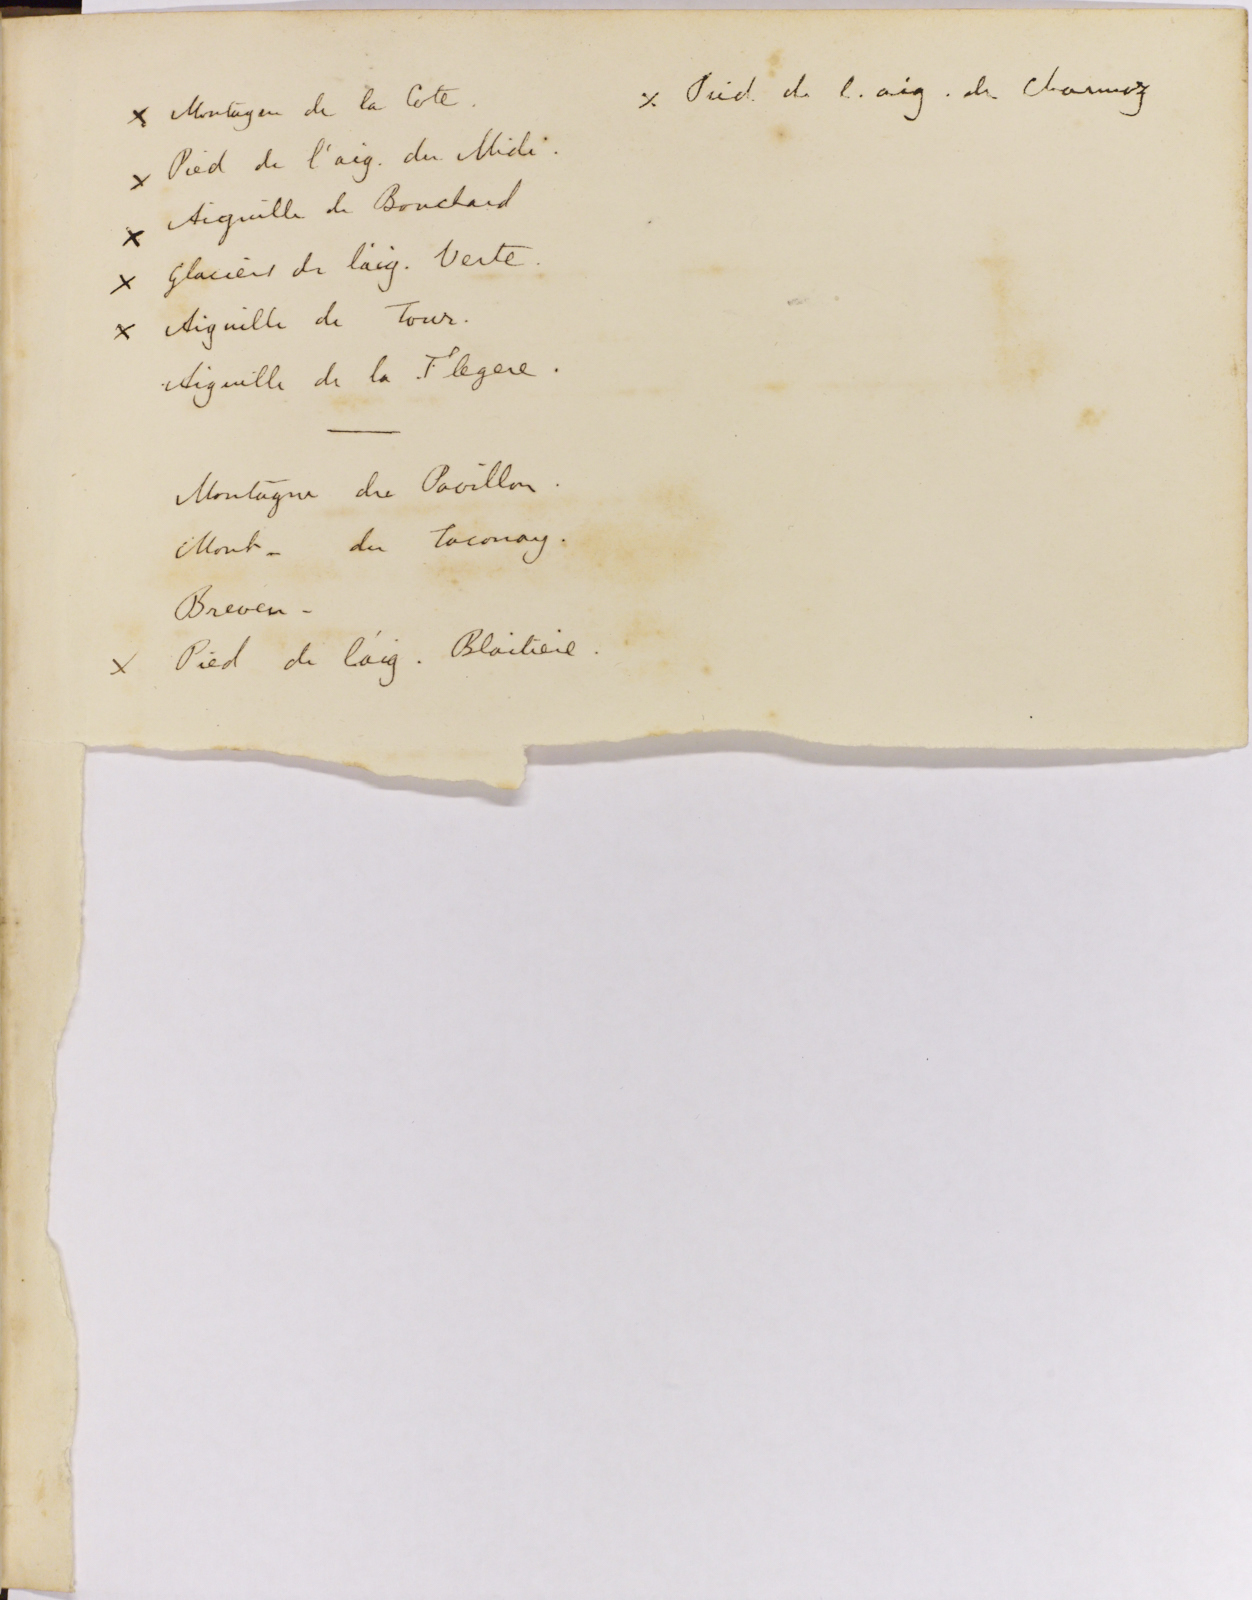 x Montagne de la Cote.
x Pied de l'aig. du Midi.
x Aiguille de Bouchard
x Glaciers de l'aig. Verte.
x Aiguille de Tour.
Aiguille de la Flegere.
Montagne du Pavillon.
Mont - du Taconay.
Breven -
x Pied de l'aig. Blaitiere.
x Pied de l. aig. de Charmoz